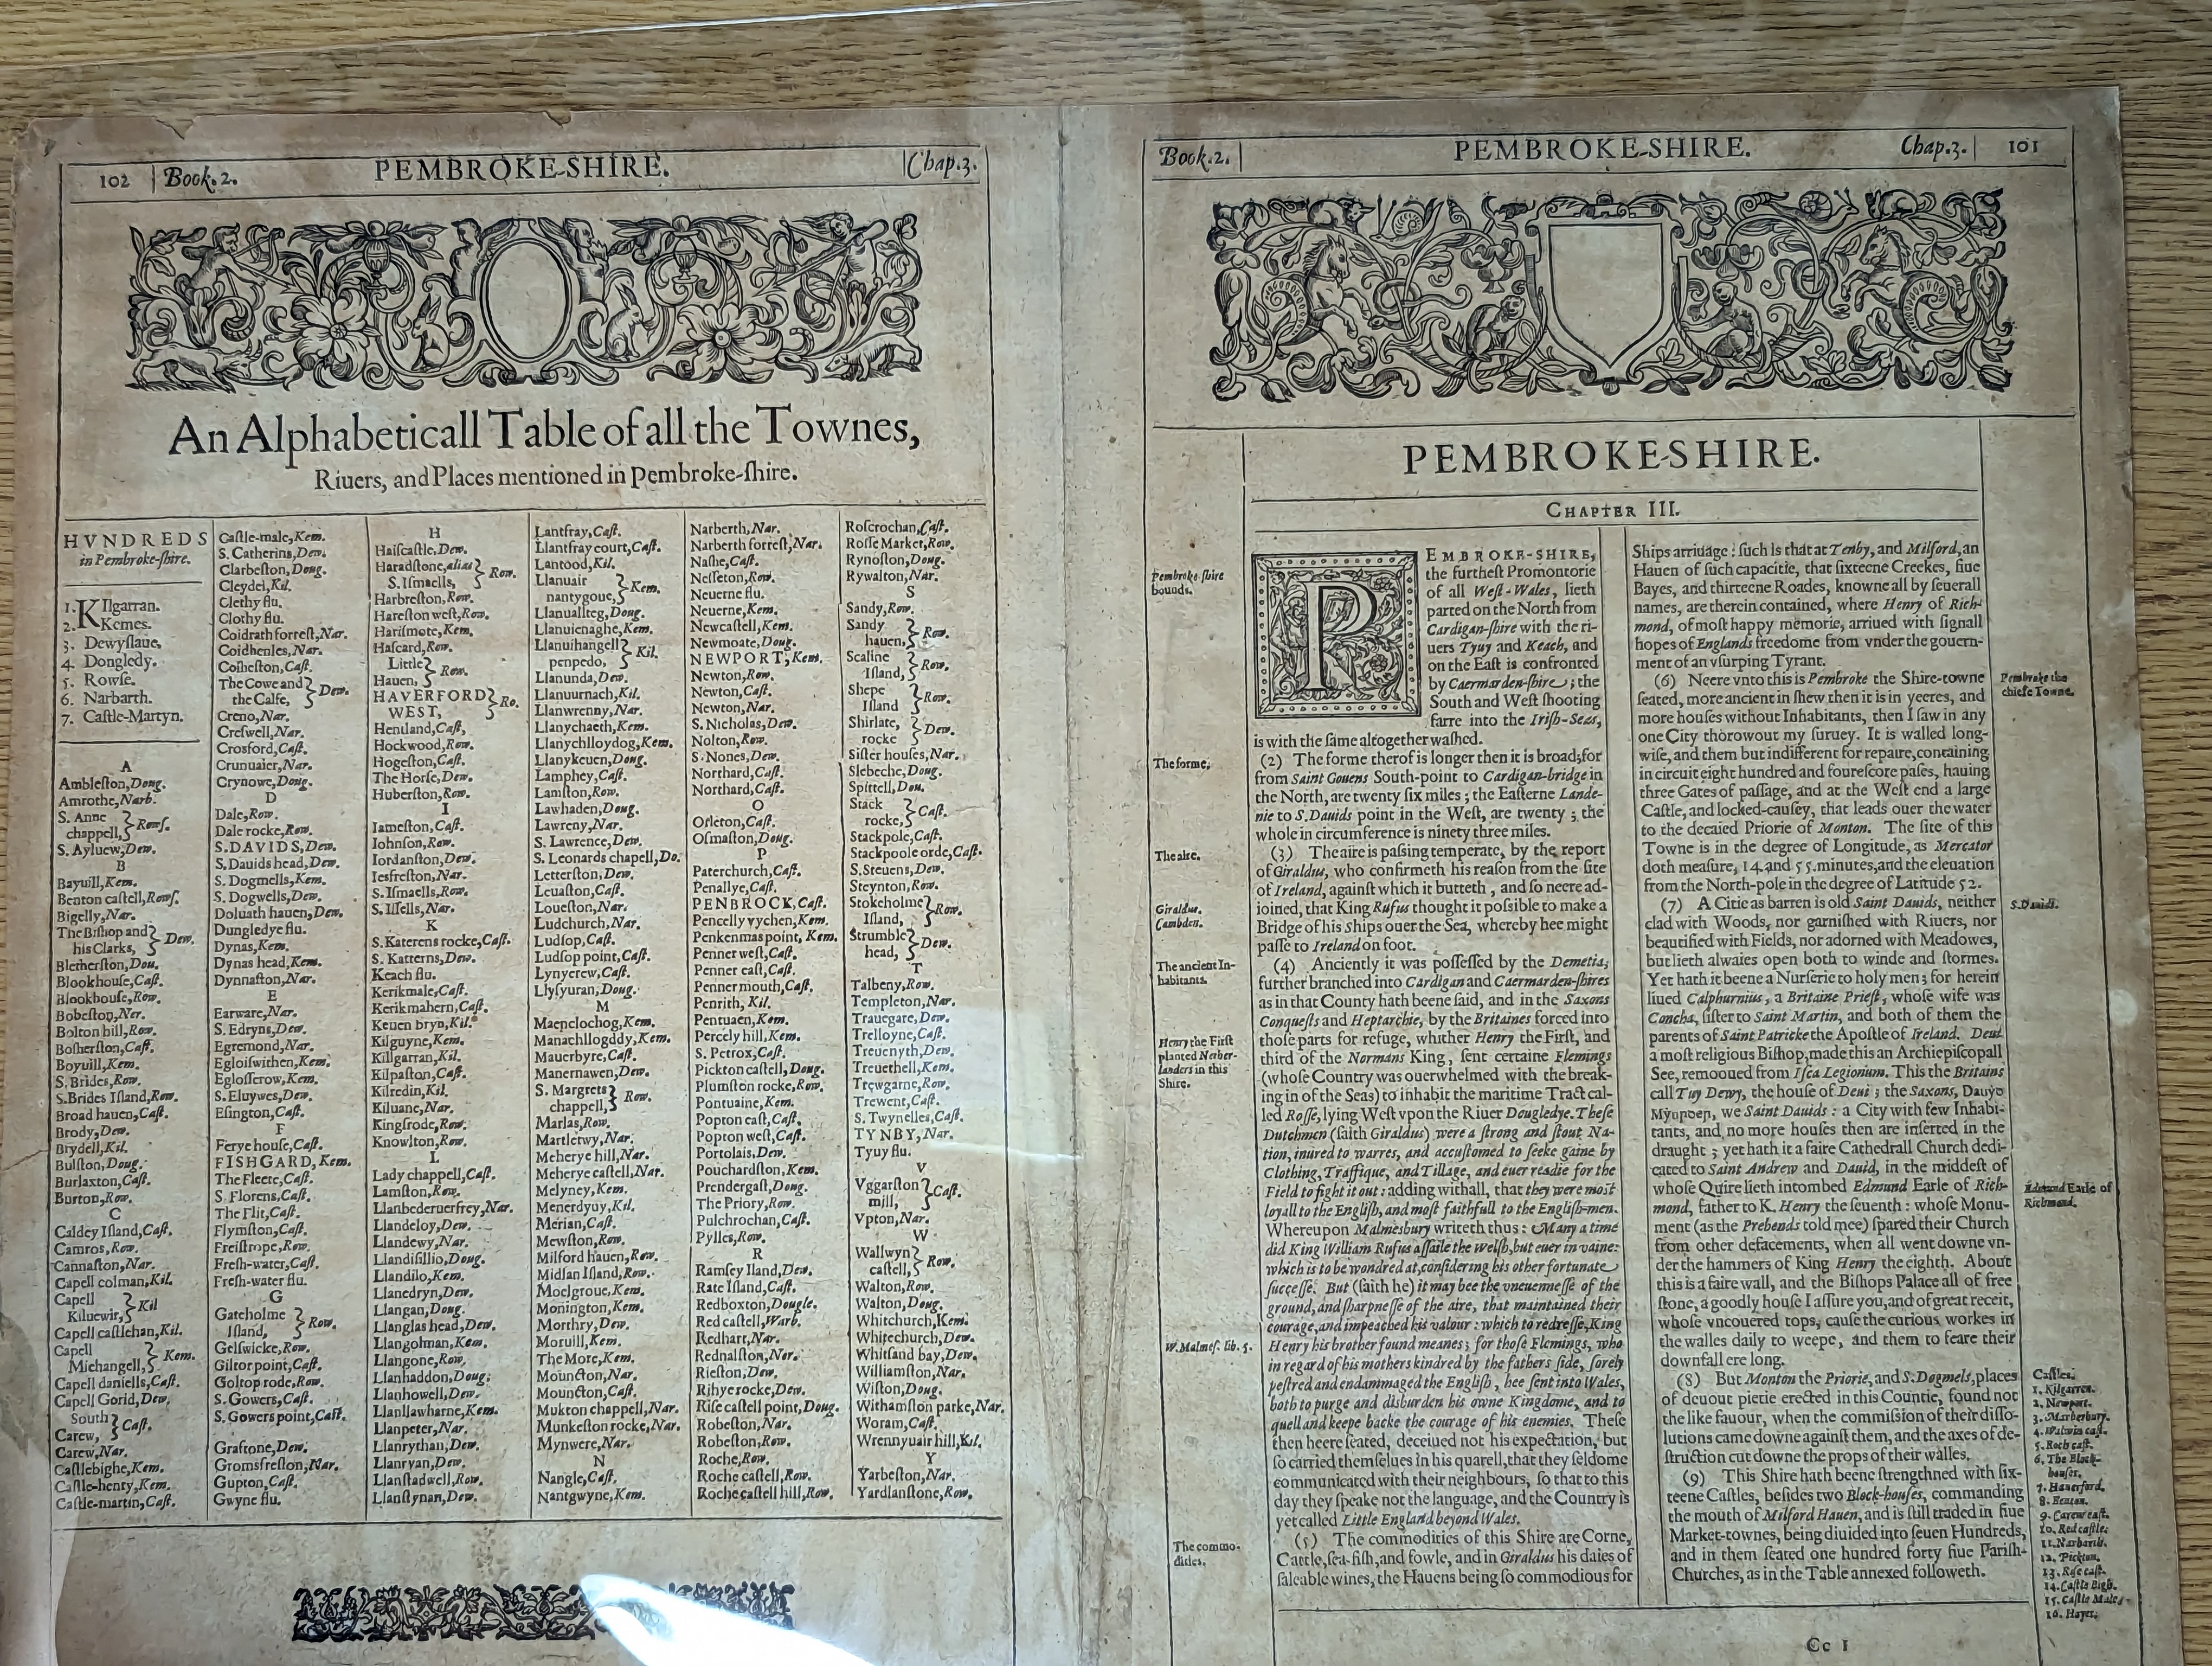 102 Book.2. PEMBROKE-SHIRE. Chap.3.
An Alphabeticall Table of all the Townes,
Riuers, and Places mentioned in Pembroke-ſhire.
HVNDREDS
in Pembroke-ſhire.
1. Kilgarran.
2. Kemes.
3. Dewyſlaue.
4. Dongledy.
5. Rowſe.
6. Narbarth.
7. Caſtle-Martyn.
A
Ambleſton,Doug.
Amrothe,Narb.
S. Anne
chappell, Rowſ.
S. Ayluew,Dew.
B
Bayuill,Kem.
Benton caſtell,Rowſ.
Bigelly,Nar.
The Biſhop and
his Clarks, Dew.
Bletherſton,Dou.
Blookhouſe,Caſt.
Blookhouſe,Row.
Bobeſton,Ner.
Bolton hill,Row.
Boſherſton,Caſt.
Boyuill,Kem.
S. Brides,Row.
S.Brides Iſland,Row.
Broad hauen,Caſt.
Brody,Dew.
Brydell,Kil.
Bulſton,Doug.
Burlaxton,Caſt.
Burton,Row.
C
Caldey Iſland,Caſt.
Camros,Row.
Cannaſton,Nar.
Capell colman,Kil.
Capell
Kiluewir, Kil
Capell caſtlehan,Kil.
Capell
Michangell, Kem.
Capell daniells,Caſt.
Capell Gorid,Dew.
South
Carew, Caſt.
Carew,Nar.
Caſtlebighe,Kem.
Caſtle-henry,Kem.
Caſtle-martin,Caſt.
Caſtle-male,Kem.
S. Catherins,Dew.
Clarbeſton,Doug.
Cleydei,Kil.
Clethy flu.
Clothy flu.
Coidrath forreſt,Nar.
Coidhenles,Nar.
Coſheſton,Caſt.
The Cowe and
the Calfe, Dew.
Creno,Nar.
Creſwell,Nar.
Crosford,Caſt.
Crunuaier,Nar.
Crynowe,Doug.
D
Dale,Row.
Dale rocke,Row.
S.DAVIDS,Dew.
S.Dauids head,Dew.
S. Dogmells,Kem.
S. Dogwells,Dew.
Doluath hauen,Dew.
Dungledye flu.
Dynas,Kem.
Dynas head,Kem.
Dynnaſton,Nar.
E
Earware,Nar.
S. Edryns,Dew.
Egremond,Nar.
Egloiſwithen,Kem.
Egloſſerow,Kem.
S.Eluywes,Dew.
Eſington,Caſt.
F
Ferye houſe,Caſt.
FISHGARD,Kem.
The Fleete,Caſt.
S. Florens,Caſt.
The Flit,Caſt.
Flymſton,Caſt.
Freiſtrope,Row.
Freſh-water,Caſt.
Freſh-water flu.
G
Gateholme
Iſland, Row.
Gelſwicke,Row.
Giltor point,Caſt.
Goltop rode,Row.
S.Gowers,Caſt.
S.Gowers point,Caſt.
Graftone,Dew.
Gromsfreſton,Nar.
Gupton,Caſt.
Gwyne flu.
H
Haiſcaſtle,Dew.
Haradſtone,alias
S. Iſmaells, Row.
Harbreſton,Row.
Hareſton weſt,Row.
Hariſmote,Kem.
Haſcard,Row.
Little
Hauen, Row.
HAVERFORD
WEST, Ro.
Hentland,Caſt.
Hockwood,Row.
Hogeſton,Caſt.
The Horſe,Dew.
Huberſton,Row.
I
Iameſton,Caſt.
Iohnſon,Row.
Iordanſton,Dew.
Ieſfreſton,Nar.
S.Iſmaells,Row.
S. Iſſells,Nar.
K
S.Katerens rocke,Caſt.
S. Katterns,Dew.
Keach flu.
Kerikmale,Caſt.
Kerikmahern,Caſt.
Keuen bryn,Kil.
Kilguyne,Kem.
Killgarran,Kil.
Kilpaſton,Caſt.
Kilredin,Kil.
Kiluane,Nar.
Kingſrode,Row.
Knowlton,Row.
L
Lady chappell,Caſt.
Lamſton,Row.
Llanbederuerfrey,Nar.
Llandeloy,Dew.
Llandewy,Nar.
Llandiſillio,Doug.
Llandilo,Kem.
Llanedryn,Dew.
Llangan,Doug.
Llanglas head,Dew.
Llangolman,Kem.
Llangone,Row.
Llanhaddon,Doug.
Llanhowell,Dew.
Llanllawharne,Kem.
Llanpeter,Nar.
Llanrythan,Dew.
Llanryan,Dew.
Llanſtadwell,Row.
Llanſtynan,Dew.
Lantfray,Caſt.
Llantfray court,Caſt.
Lantood,Kil.
Llanuair
nantygoue, Kem.
Llanuallteg,Doug.
Llanuienaghe,Kem.
Llanuihangell
penpedo, Kil.
Llanunda,Dew.
Llanuurnach,Kil.
Llanwrenny,Nar.
Llanychaeth,Kem.
Llanychlloydog,Kem.
Llanykeuen,Doug.
Lamphey,Caſt.
Lamſton,Row.
Lawhaden,Doug.
Lawreny,Nar.
S. Lawrence,Dew.
S. Leonards chapell,Do.
Letterſton,Dew.
Leuaſton,Caſt.
Loueſton,Nar.
Ludchurch,Nar.
Ludſop,Caſt.
Ludſop point,Caſt.
Lynyerew,Caſt.
Llyſyuran,Doug.
M
Maenclochog,Kem.
Manachllogddy,Kem.
Mauerbyre,Caſt.
Manernawen,Dew.
S. Margrets
chappell, Row.
Marlas,Row.
Martletwy,Nar.
Meherye hill,Nar.
Meherye caſtell,Nar.
Melyney,Kem.
Menerdyuy,Kil.
Merian,Caſt.
Mewſton,Row.
Milford hauen,Row.
Midlan Iſland,Row.
Moelgroue,Kem.
Monington,Kem.
Morthry,Dew.
Moruill,Kem.
The More,Kem.
Moun&ton,Nar.
Moun&ton,Caſt.
Mukton chappell,Nar.
Munkeſton rocke,Nar.
Mynwere,Nar.
N
Nangle,Caſt.
Nantgwyne,Kem.
Narberth,Nar.
Narberth forreſt,Nar.
Naſhe,Caſt.
Neſſeton,Row.
Neuerne flu.
Neuerne,Kem.
Newcaſtell,Kem.
Newmoate,Doug.
NEWPORT,Kem.
Newton,Row.
Newton,Caſt.
Newton,Nar.
S. Nicholas,Dew.
Nolton,Row.
S. Nones,Dew.
Northard,Caſt.
Northard,Caſt.
O
Orleton,Caſt.
Oſmaſton,Doug.
P
Paterchurch,Caſt.
Penallye,Caſt.
PENBROCK,Caſt.
Pencelly vychen,Kem.
Penkenmas point,Kem.
Penner weſt,Caſt.
Penner eaſt,Caſt.
Penner mouth,Caſt.
Penrith,Kil.
Pentuaen,Kem.
Percely hill,Kem.
S. Petrox,Caſt.
Pickton caſtell,Doug.
Plumſton rocke,Row.
Pontuaine,Kem.
Popton eaſt,Caſt.
Popton weſt,Caſt.
Portolais,Dew.
Pouchardſton,Kem.
Prendergaſt,Doug.
The Priory,Row.
Pulchrochan,Caſt.
Pylles,Row.
R
Ramſey Iland,Dew.
Rate Iſland,Caſt.
Redboxton,Dougle.
Red caſtell,Warb.
Redhart,Nar.
Rednalſton,Ner.
Rieſton,Dew.
Rihye rocke,Dew.
Riſe caſtell point,Doug.
Robeſton,Nar.
Robeſton,Row.
Roche,Row.
Roche caſtell,Row.
Roche caſtell hill,Row.
Roſcrochan,Caſt.
Roſſe Market,Row.
Rynoſton,Doug.
Rywalton,Nar.
S
Sandy,Row.
Sandy
hauen, Row.
Scaline
Iſland, Row.
Shepe
Iſland Row.
Shirlate,
rocke Dew.
Siſter houſes,Nar.
Slebeche,Doug.
Spittell,Dou.
Stack
rocke, Caſt.
Stackpole,Caſt.
Stackpoole orde,Caſt.
S.Steuens,Dew.
Steynton,Row.
Stokeholme
Iſland, Row.
Strumble
head, Dew.
T
Talbeny,Row.
Templeton,Nar.
Trauegare,Dew.
Trelloyne,Caſt.
Treuenyth,Dew.
Treuethell,Kem.
Trewgarne,Row.
Trewent,Caſt.
S. Twynelles,Caſt.
TYNBY,Nar.
Tyuy flu.
V
Vggarſton
mill, Caſt.
Vpton,Nar.
W
Wallwyn
caſtell, Row.
Walton,Row.
Walton,Doug.
Whitchurch,Kem.
Whitechurch,Dew.
Whitſand bay,Dew.
Williamſton,Nar.
Wiſton,Doug.
Withamſton parke,Nar.
Woram,Caſt.
Wrennyuair hill,Kil.
Y
Yarbeſton,Nar.
Yardlanſtone,Row.
Book.2. PEMBROKE-SHIRE. Chap.3. 101
PEMBROKE-SHIRE.
CHAPTER III.
Pembroke-ſhire
bounds.
PEMBROKE-SHIRE,
the furtheſt Promontorie
of all Weſt-Wales, lieth
parted on the North from
Cardigan-ſhire with the ri-
uers Tyuy and Keach, and
on the Eaſt is confronted
by Caermarden-ſhire; the
South and Weſt ſhooting
farre into the Iriſh-Seas,
is with the ſame altogether waſhed.
The forme.
(2) The forme therof is longer then it is broad; for
from Saint Gouens South-point to Cardigan-bridge in
the North, are twenty ſix miles; the Eaſterne Lande-
nie to S.Dauids point in the Weſt, are twenty; the
whole in circumference is ninety three miles.
The aire.
(3) The aire is paſſing temperate, by the report
of Giraldus, who confirmeth his reaſon from the ſite
of Ireland, againſt which it butteth, and ſo neere ad-
Giraldus.
Cambden.
joined, that King Rufus thought it poſſible to make a
Bridge of his ſhips ouer the Sea, whereby hee might
paſſe to Ireland on foot.
The ancient In-
habitants.
(4) Anciently it was poſſeſſed by the Demetia,
further branched into Cardigan and Caermarden-ſhires
as in that County hath beene ſaid, and in the Saxons
Conqueſts and Heptarchie, by the Britaines forced into
Henry the Firſt
planted Nether-
landers in this
Shire.
thoſe parts for refuge, whither Henry the Firſt, and
third of the Normans King, ſent certaine Flemings
(whoſe Country was ouerwhelmed with the break-
ing in of the Seas) to inhabit the maritime Tract cal-
led Roſſe, lying Weſt vpon the Riuer Dougledye. Theſe
Dutchmen (ſaith Giraldus) were a ſtrong and ſtout Na-
tion, inured to warres, and accuſtomed to ſeeke gaine by
Clothing, Traffique, and Tillage, and euer readie for the
Field to fight it out: adding withall, that they were moſt
loyall to the Engliſh, and moſt faithfull to the Engliſh-men.
Whereupon Malmesbury writeth thus: Many a time
did King William Rufus aſſaile the Welſh, but euer in vaine:
which is to be wondred at, conſidering his other fortunate
ſucceſſe. But (ſaith he) it may bee the vneuenneſſe of the
ground, and ſharpneſſe of the aire, that maintained their
courage, and impeached his valour: which to redreſſe, King
W.Malmeſ. lib. 5.
Henry his brother found means; for thoſe Flemings, who
in regard of his mothers kindred by the fathers ſide, ſorely
peſtred and endammaged the Engliſh, hee ſent into Wales,
both to purge and disburden his owne Kingdome, and to
quell and keepe backe the courage of his enemies. Theſe
then heere ſeated, deceiued not his expectation, but
ſo carried themſelues in his quarell, that they ſeldome
communicated with their neighbours, ſo that to this
day they ſpeake not the language, and the Country is
yet called Little England beyond Wales.
The commo-
dities.
(5) The commodities of this Shire are Corne,
Cattle, ſea-fiſh, and fowle, and in Giraldus his daies of
ſaleable wines, the Hauens being ſo commodious for
Ships arriuage: ſuch is that at Tenby, and Milford, an
Hauen of ſuch capacitie, that ſixteene Creekes, fiue
Bayes, and thirteene Roades, knowne all by ſeuerall
names, are therein contained, where Henry of Rich-
mond, of moſt happy memorie, arriued with ſignall
hopes of Englands freedome from vnder the gouern-
ment of an vſurping Tyrant.
Pembroke the
chiefe Towne.
(6) Neere vnto this is Pembroke the Shire-towne
ſeated, more ancient in ſhew then it is in yeeres, and
more houſes without Inhabitants, then I ſaw in any
one City thorowout my ſuruey. It is walled long-
wiſe, and them but indifferent for repaire, containing
in circuit eight hundred and foureſcore paſes, hauing
three Gates of paſſage, and at the Weſt end a large
Caſtle, and locked-cauſey, that leads ouer the water
to the decaied Priorie of Monton. The ſite of this
Towne is in the degree of Longitude, as Mercator
doth meaſure, 14. and 55. minutes, and the eleuation
from the North-pole in the degree of Latitude 52.
S.Dauids.
(7) A Citie as barren is old Saint Dauids, neither
clad with Woods, nor garniſhed with Riuers, nor
beautified with Fields, nor adorned with Meadowes,
but lieth alwaies open both to winde and ſtormes.
Yet hath it beene a Nurſerie to holy men; for herein
liued Calphurnius, a Britaine Prieſt, whoſe wife was
Concha, ſiſter to Saint Martin, and both of them the
parents of Saint Patricke the Apoſtle of Ireland. Deui
a moſt religious Biſhop, made this an Archiepiſcopall
See, remooued from Iſca Legionum. This the Britains
call Tuy Dewy, the houſe of Deui; the Saxons,
we Saint Dauids: a City with few Inhabi-
tants, and no more houſes then are inſerted in the
draught; yet hath it a faire Cathedrall Church dedi-
cated to Saint Andrew and Dauid, in the middeſt of
Edmund Earle of
Richmond.
whoſe Quire lieth intombed Edmund Earle of Rich-
mond, father to K. Henry the ſeuenth: whoſe Monu-
ment (as the Prebends told mee) ſpared their Church
from other defacements, when all went downe vn-
der the hammers of King Henry the eighth. About
this is a faire wall, and the Biſhops Palace all of free
ſtone, a goodly houſe I aſſure you, and of great receit,
whoſe vncouered tops, cauſe the curious workes in
the walles daily to weepe, and them to feare their
downfall ere long.
(8) But Monton the Priorie, and S.Dogmels, places
of deuout pietie erected in this Countie, found not
the like fauour, when the commiſſion of their diſſo-
lutions came downe againſt them, and the axes of de-
ſtruction cut downe the props of their walles.
(9) This Shire hath beene ſtrengthned with ſix-
teene Caſtles, beſides two Block-houſes, commanding
the mouth of Milford Hauen, and is ſtill traded in fiue
Market-townes, being diuided into ſeuen Hundreds,
and in them ſeated one hundred forty fiue Pariſh-
Churches, as in the Table annexed followeth.
Caſtles.
1. Kilgarren.
2. Newport.
3. Marberbury.
4. Walwin caſt.
5. Roch caſt.
6. The Block-
houſes.
7. Hauerford.
8. Benton.
9. Carew caſt.
10. Red caſtle.
11. Narbarth.
12. Pickton.
13. Riſe caſt.
14. Caſtle Bigh.
15. Caſtle Male.
16. Hayes.
Cc 1